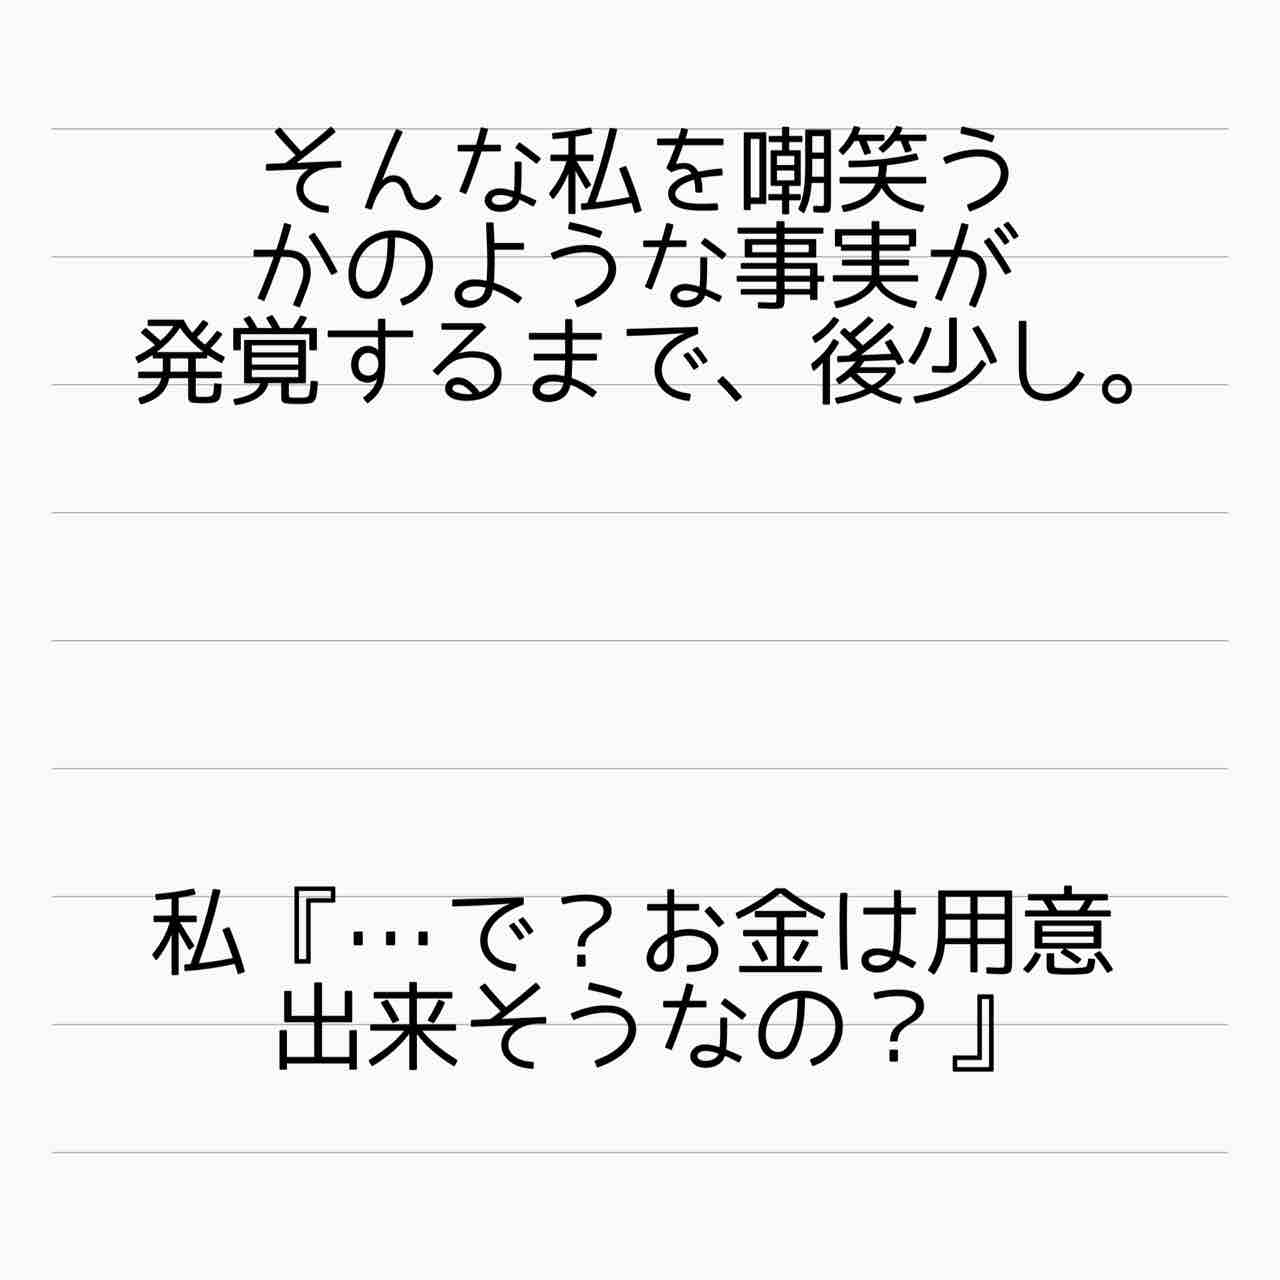 そんな私を嘲笑う
かのような事実が
発覚するまで、後少し。
私『…で？お金は用意
出来そうなの？』